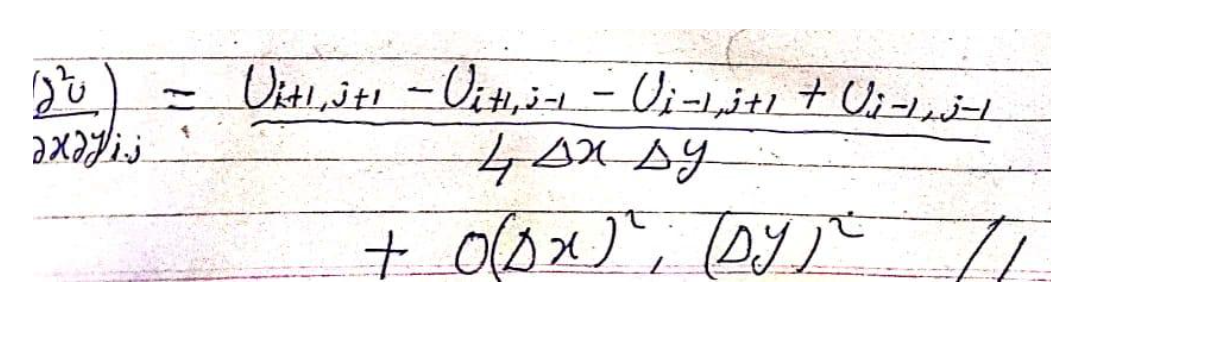 (∂²U/∂x∂y)i,j = (Ui+1,j+1 − Ui+1,j−1 − Ui−1,j+1 + Ui−1,j−1) / (4 Δx Δy)
+ O(Δx)², (Δy)² //